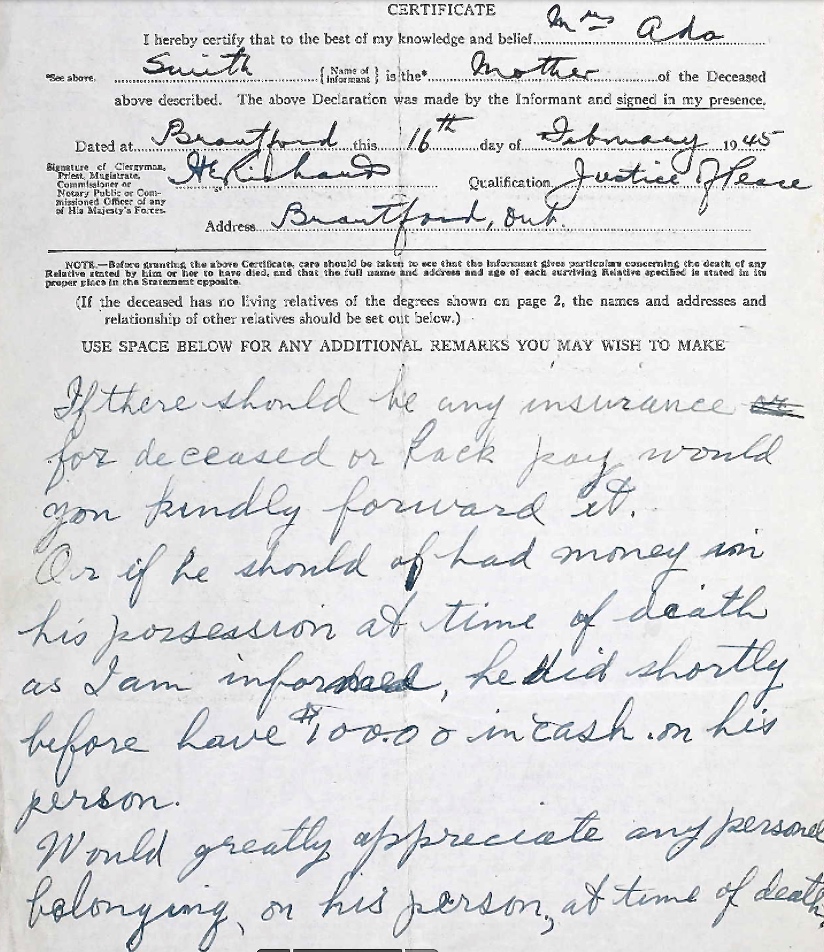 CERTIFICATE
I hereby certify that to the best of my knowledge and belief Mrs Ada
*See above. Smith { Name of Informant } is the* Mother of the Deceased
above described. The above Declaration was made by the Informant and signed in my presence.
Dated at Brantford this 16th day of February 1945
Signature of Clergyman,
Priest, Magistrate,
Commissioner or
Notary Public or Com-
missioned Officer of any
of His Majesty's Forces.
H Richards Qualification Justice of Peace
Address Brantford, Ont.
NOTE.—Before granting the above Certificate, care should be taken to see that the Informant gives particulars concerning the death of any
Relative stated by him or her to have died, and that the full name and address and age of each surviving Relative specified is stated in its
proper place in the Statement opposite.
(If the deceased has no living relatives of the degrees shown on page 2, the names and addresses and
relationship of other relatives should be set out below.)
USE SPACE BELOW FOR ANY ADDITIONAL REMARKS YOU MAY WISH TO MAKE
If there should be any insurance or
for deceased or back pay would
you kindly forward it.
Or if he should of had money in
his possession at time of death
as I am informed, he did shortly
before have $100.00 in cash on his
person.
Would greatly appreciate any personel
belonging, on his person, at time of death.